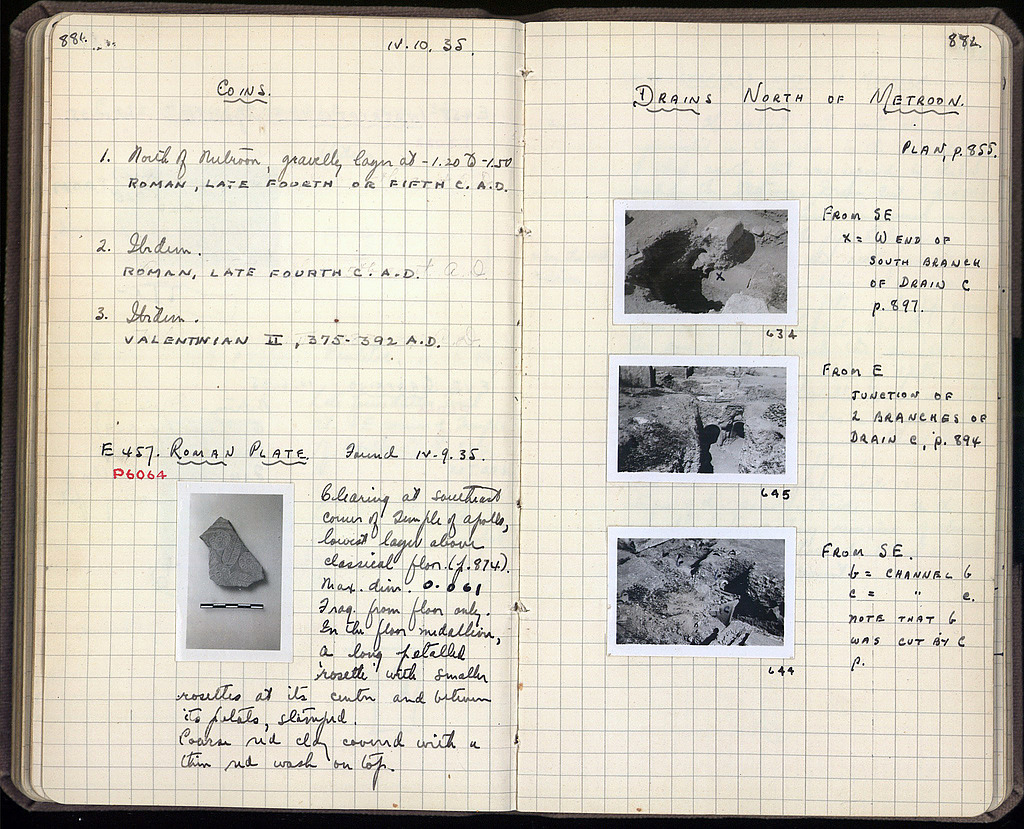 IV.10.35.
COINS.
1. North of Metroon, gravelly layer at -1.20 to -1.50
ROMAN, LATE FOURTH OR FIFTH C. A.D.
2. Ibidem.
ROMAN, LATE FOURTH C. A.D.
3. Ibidem.
VALENTINIAN II, 375-392 A.D.
E 457. ROMAN PLATE. Found IV.9.35.
P6064
Clearing at southeast
corner of Temple of Apollo,
lowest layer above
classical floor. (p.874).
Max. dim. 0.061
Frag. from floor only.
In the floor medallion,
a long petalled
'rosette' with smaller
rosettes at its center and between
its petals, stamped.
Coarse red clay covered with a
thin red wash on top.
882
DRAINS NORTH OF METROON.
PLAN, p.855.
FROM SE
X = W END OF
SOUTH BRANCH
OF DRAIN C
p.897.
X
634
FROM E
JUNCTION OF
2 BRANCHES OF
DRAIN C, p.894
645
FROM SE.
b = CHANNEL b
c = " c.
NOTE THAT b
WAS CUT BY C
p.
644